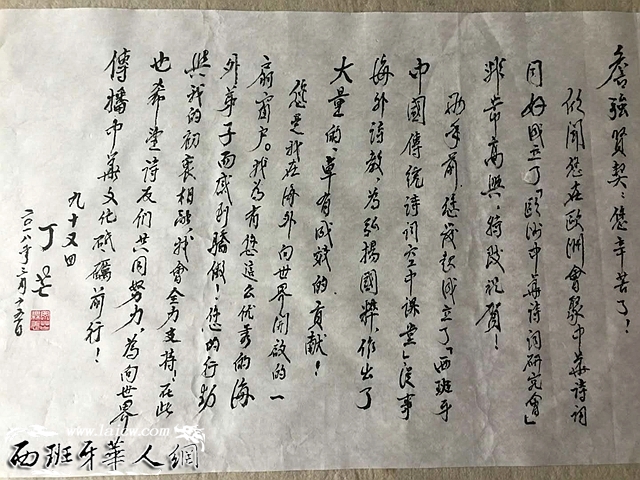 詹強賢契：您辛苦了！
欣聞您在歐洲會聚中華詩詞
同好成立了「歐洲中華詩詞研究會」
非常高興，特致祝賀！
兩年前您發起成立了「西班牙
中國傳統詩詞空中課堂」從事
海外詩教，为弘揚國粹，作出了
大量的、卓有成效的貢献！
您是我在海外向世界開啟的一
扇窗户。我为有您這么优秀的海
外弟子而感到驕傲！您的行动
與我的初衷相融，我會全力支持！在此
也希望詩友們共同努力，为向世界
傳播中華文化砥礪前行！
九十又四
丁芒
二〇一八年二月十五日
www.laizw.com
西班牙華人網